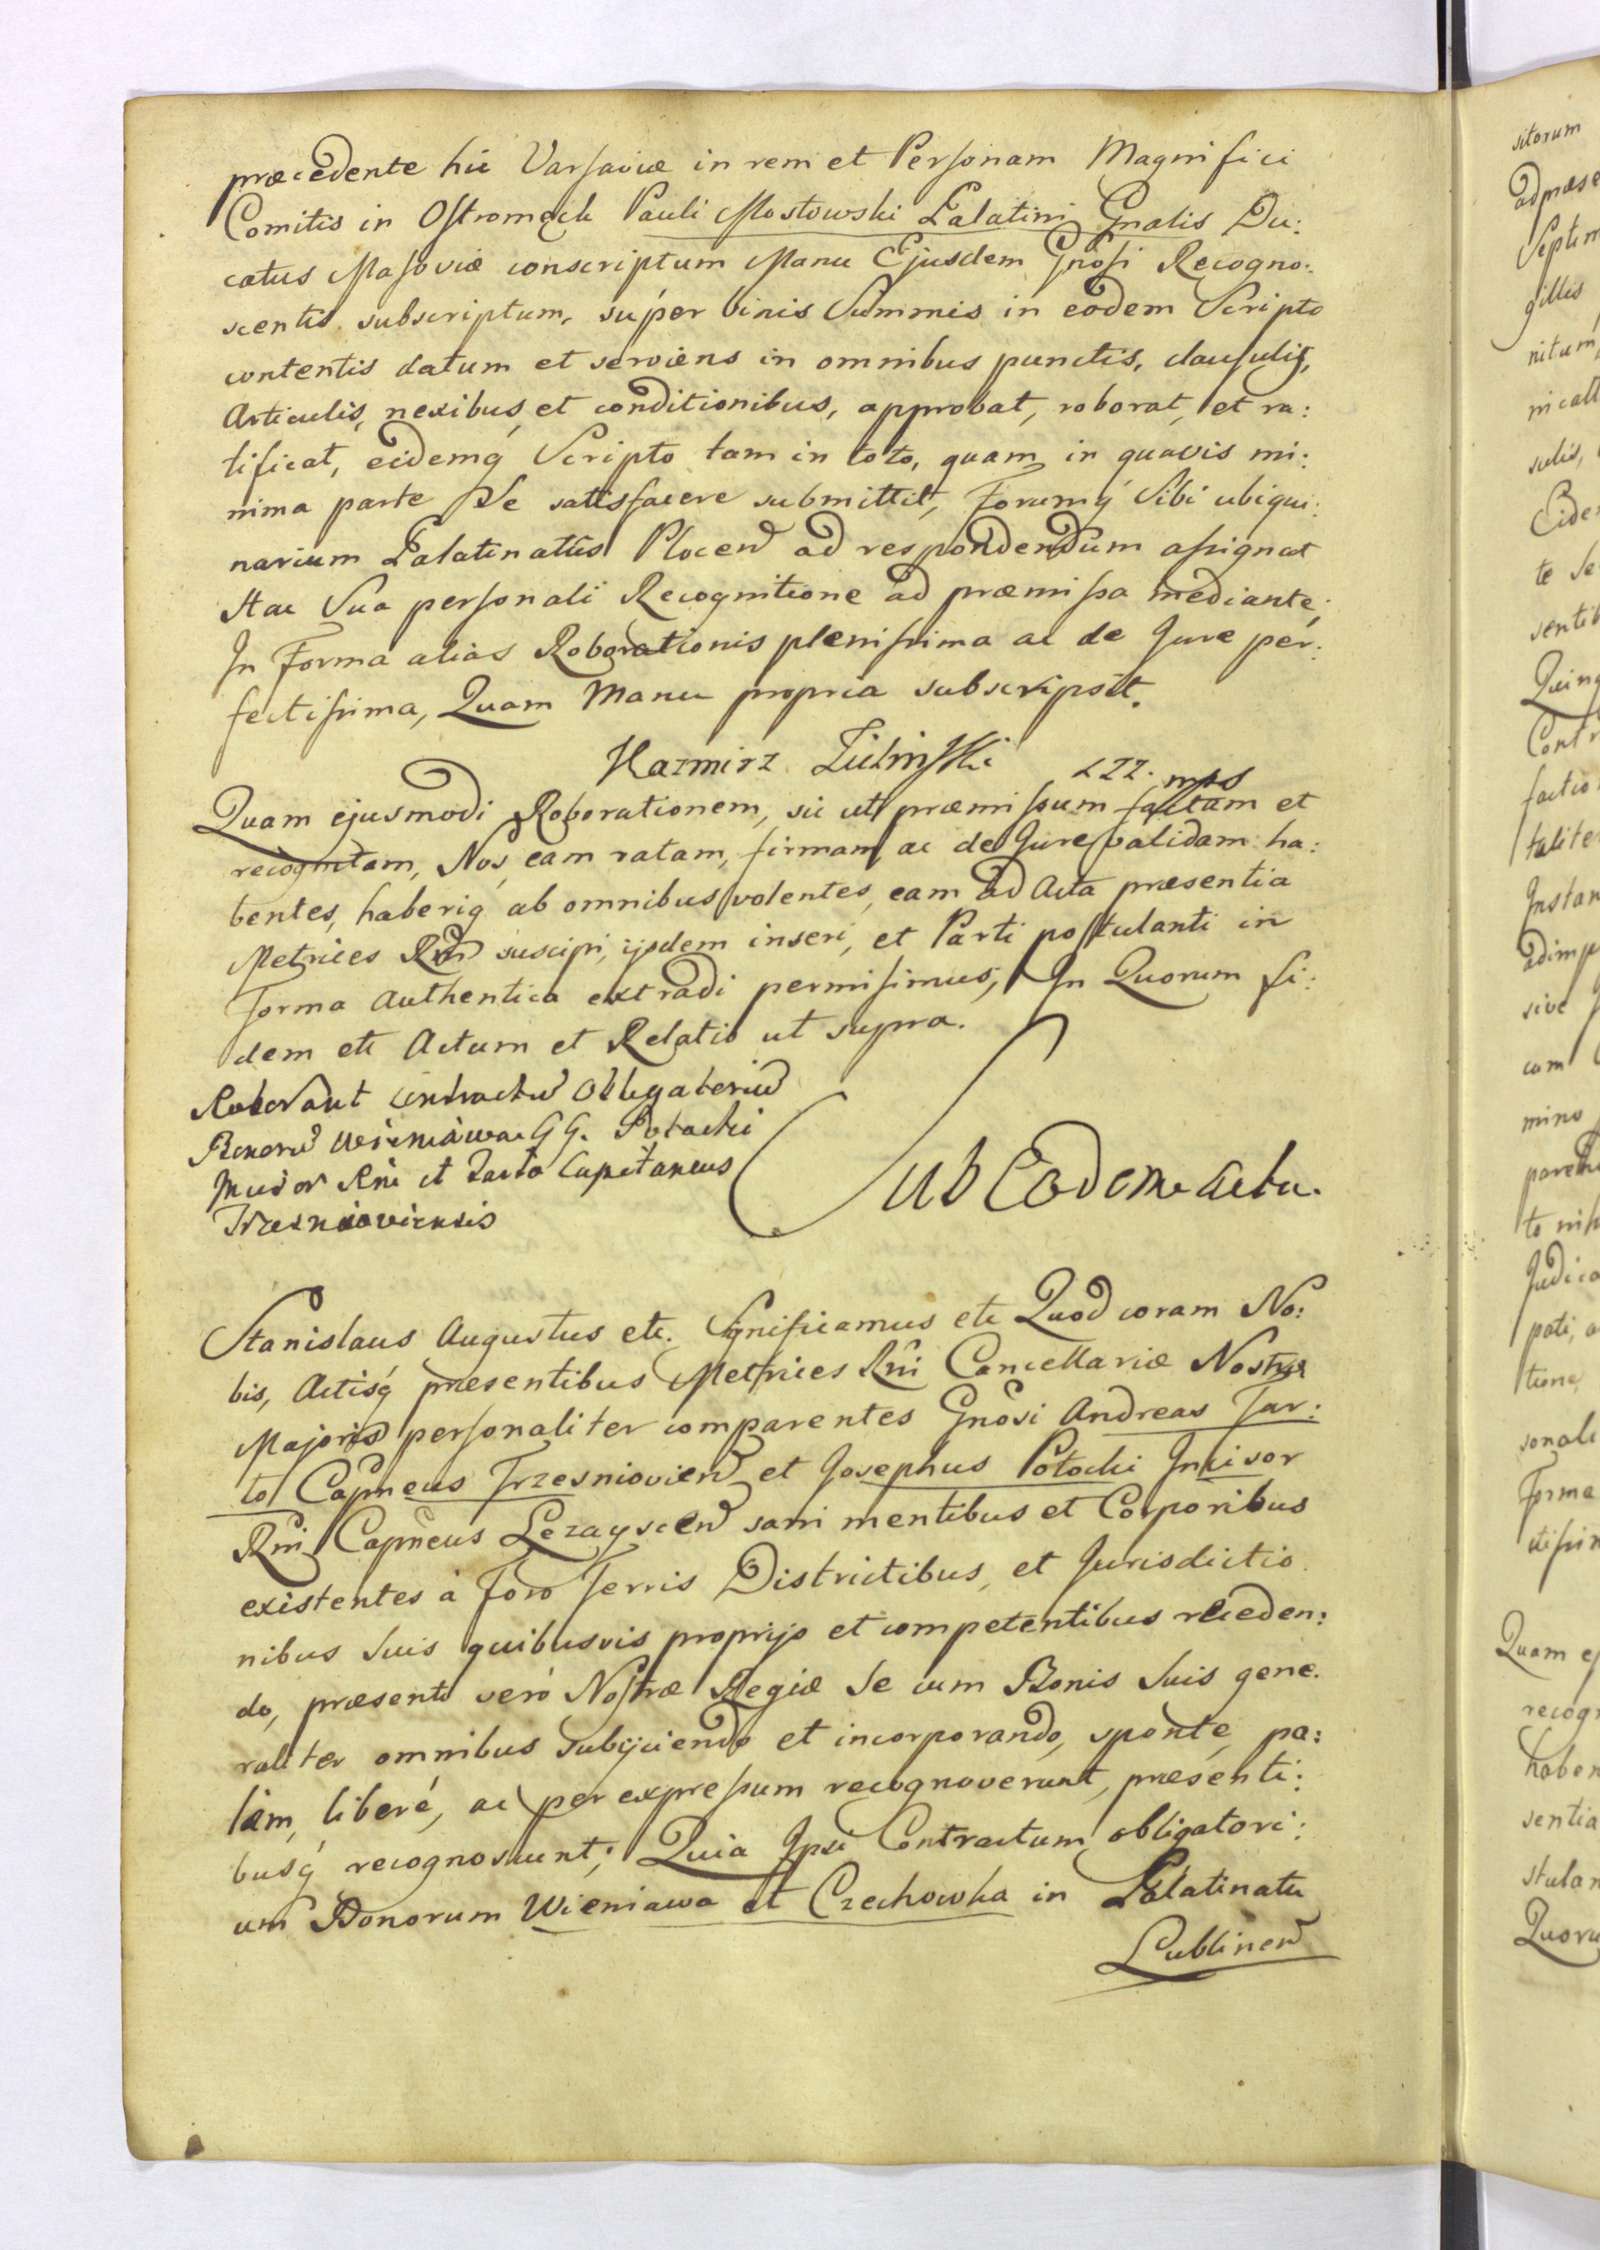 præcedente hic Varsaviæ in rem et Personam Magnifici
Comitis in Ostromęck Pauli Mostowski Palatini Gnalis Du:
catus Masoviæ conscriptum Manu Ejusdem Gnosi Recogno:
scentis subscriptum, super binis Summis in eodem Scripto
contentis datum et serviens in omnibus punctis, clausulis,
Articulis, nexibus, et conditionibus, approbat, roborat, et ra:
tificat, eidemq́ Scripto tam in toto, quam in quavis mi:
nima parte Se satisfacere submittit, Forumq́ Sibi ubiqui:
narium Palatinatûs Plocen ad respondendum assignat
Hac Sua personali Recognitione ad præmissa mediante;
In Forma alias Roborationis plenissima ac de Jure per:
fectissima, Quam Manu propria subscripsit.
Kazmirz mpp
Quam ejusmodi Roborationem, sic ut præmissum factam et
recognitam, Nos eam ratam, firmam, ac de Jure validam ha:
bentes, haberiq́ ab omnibus volentes, eam ad Acta præsentia
Metrices Rni suscipi, ijsdem inseri, et Parti postulanti in
forma Authentica extradi permisimus; In Quorum fi:
dem etc Actum et Relatio ut supra.
Roborant contractu Obligatoriu
Bonoru Wieniawa GG. Potocki
Incisor Rni et Tarło Capitaneus
Trzesnioviensis
Sub Eodem Actu.
Stanislaus Augustus etc. Significamus etc Quod coram No:
bis, Actisq́ præsentibus Metrices Rni Cancellariæ Nostræ
Majoris personaliter comparentes Gnosi Andreas Tar:
ło Capneus Trzesniovien et Josephus Potocki Incisor
Rni Capneus Lezayscen sani mentibus et Corporibus
existentes à Foro Terris Districtibus, et Jurisdictio
nibus Suis quibusvis proprijs et competentibus receden:
do, præsenti verò Nostræ Regiæ Se cum Bonis Suis gene.
raliter omnibus subijciendo et incorporando, sponte, pa:
làm, liberé, ac per expressum recognoverunt, præsenti:
busq́ recognoscunt; Quia Ipsi Contractum obligatori:
um Bonorum Wieniawa et Czechowka in Palatinatu
Lublinen
sitorum
ad præse
Septem
gillis
nitum,
sulis,
Eidem
te Se
sentib
Quinq
Contr
factio
talite
Instan
adimp
sive
cum
mino
to
Judica
pati, a
tione
sonali
Forma
Quam ej
recogn
haben
sentia
stulan
Quoru